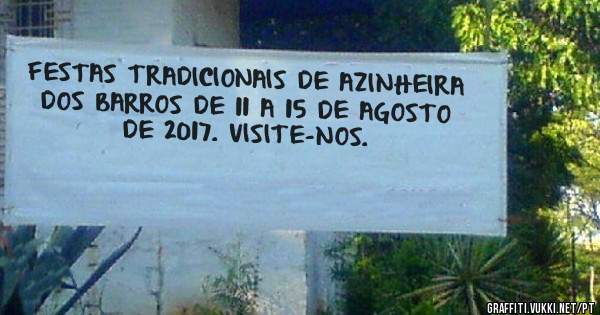 FESTAS TRADICIONAIS DE AZINHEIRA
DOS BARROS DE 11 A 15 DE AGOSTO
DE 2017. VISITE-NOS.
GRAFFITI.VUKKI.NET/PT